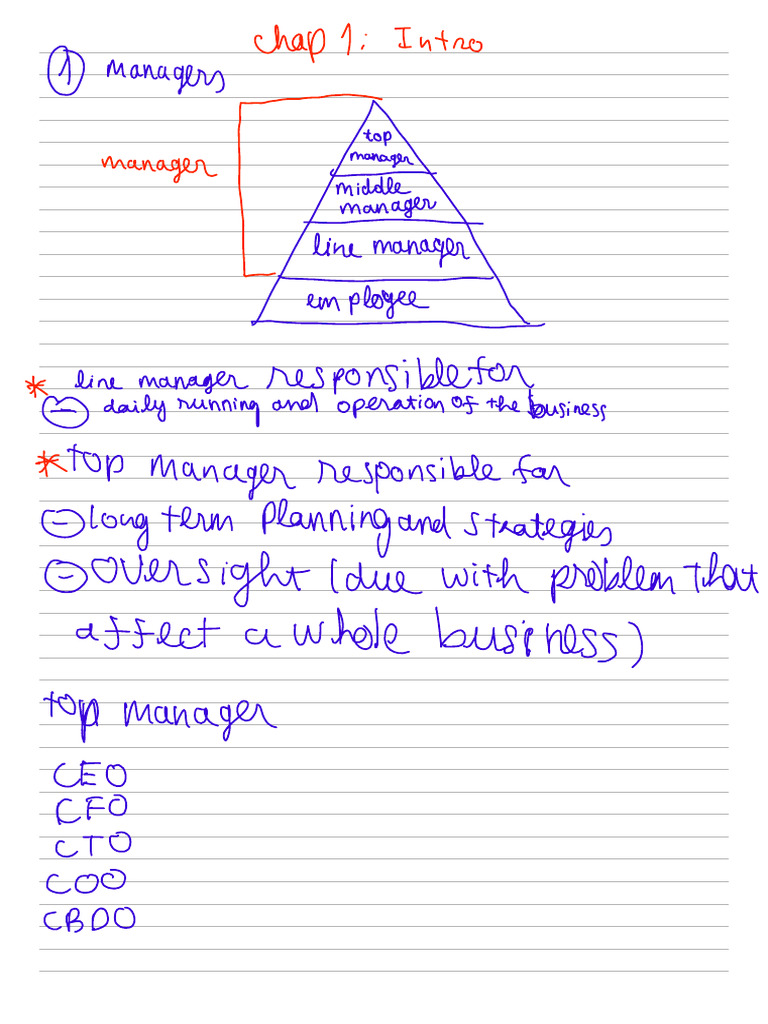 Chap 1: Intro
1 Managers
top
manager
manager
middle
manager
line manager
employee
* line manager responsible for
- daily running and operation of the business
* top manager responsible for
- long term planning and strategies
- oversight (due with problem that
affect a whole business)
top manager
CEO
CFO
CTO
COO
CBDO